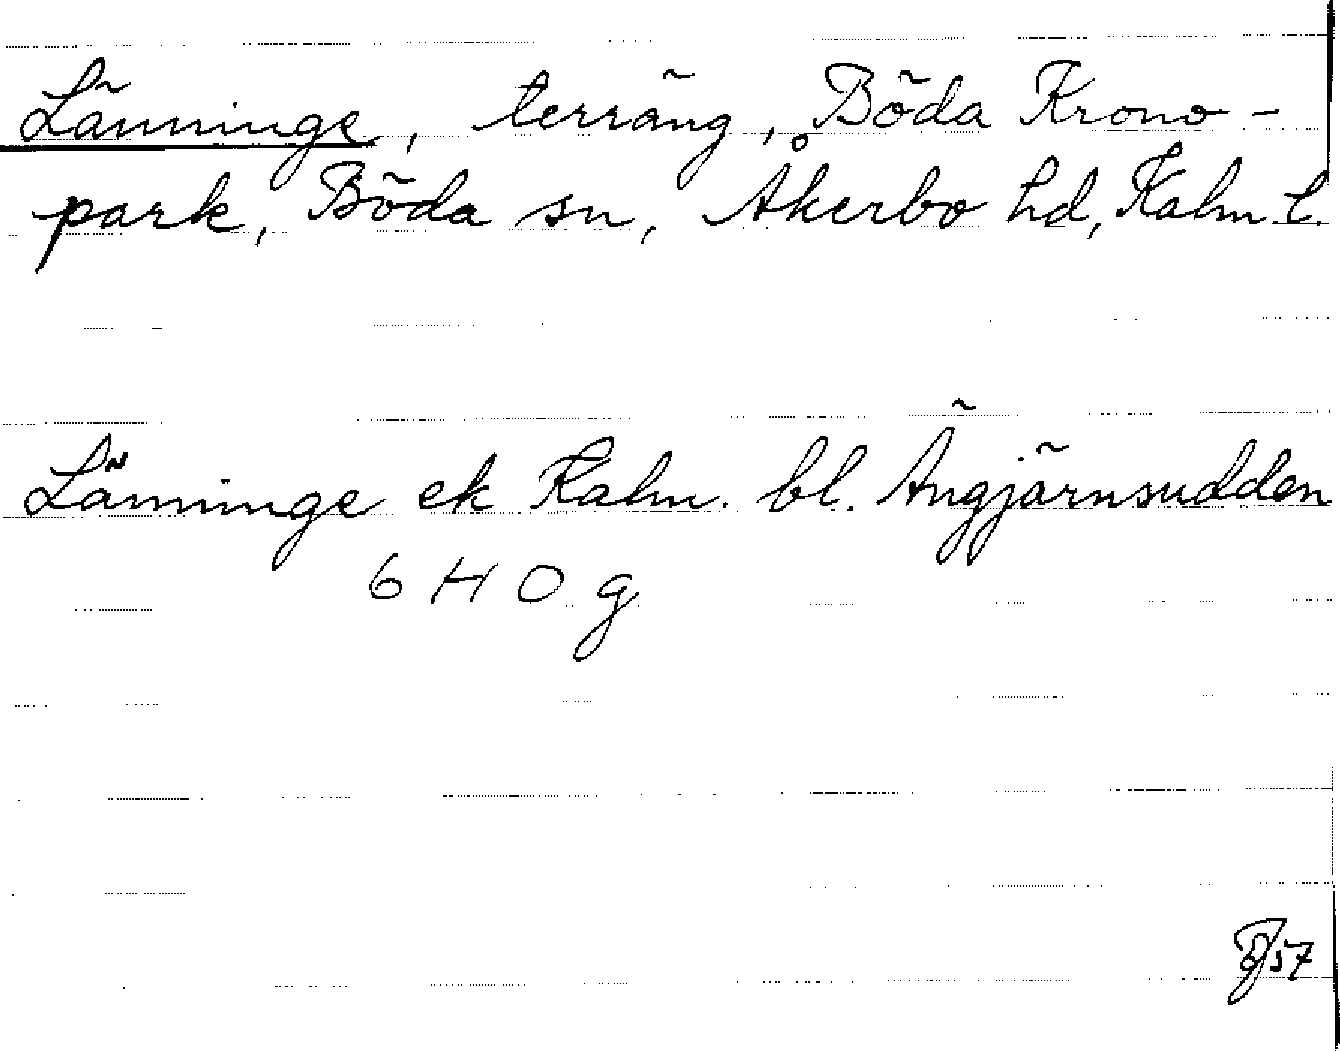 Länninge, terräng, Böda Krono-
park, Böda sn, Åkerbo hd, Kalm. l.
Länninge ek Kalm. bl. Ängjärnsudden
6 H 0 g
57